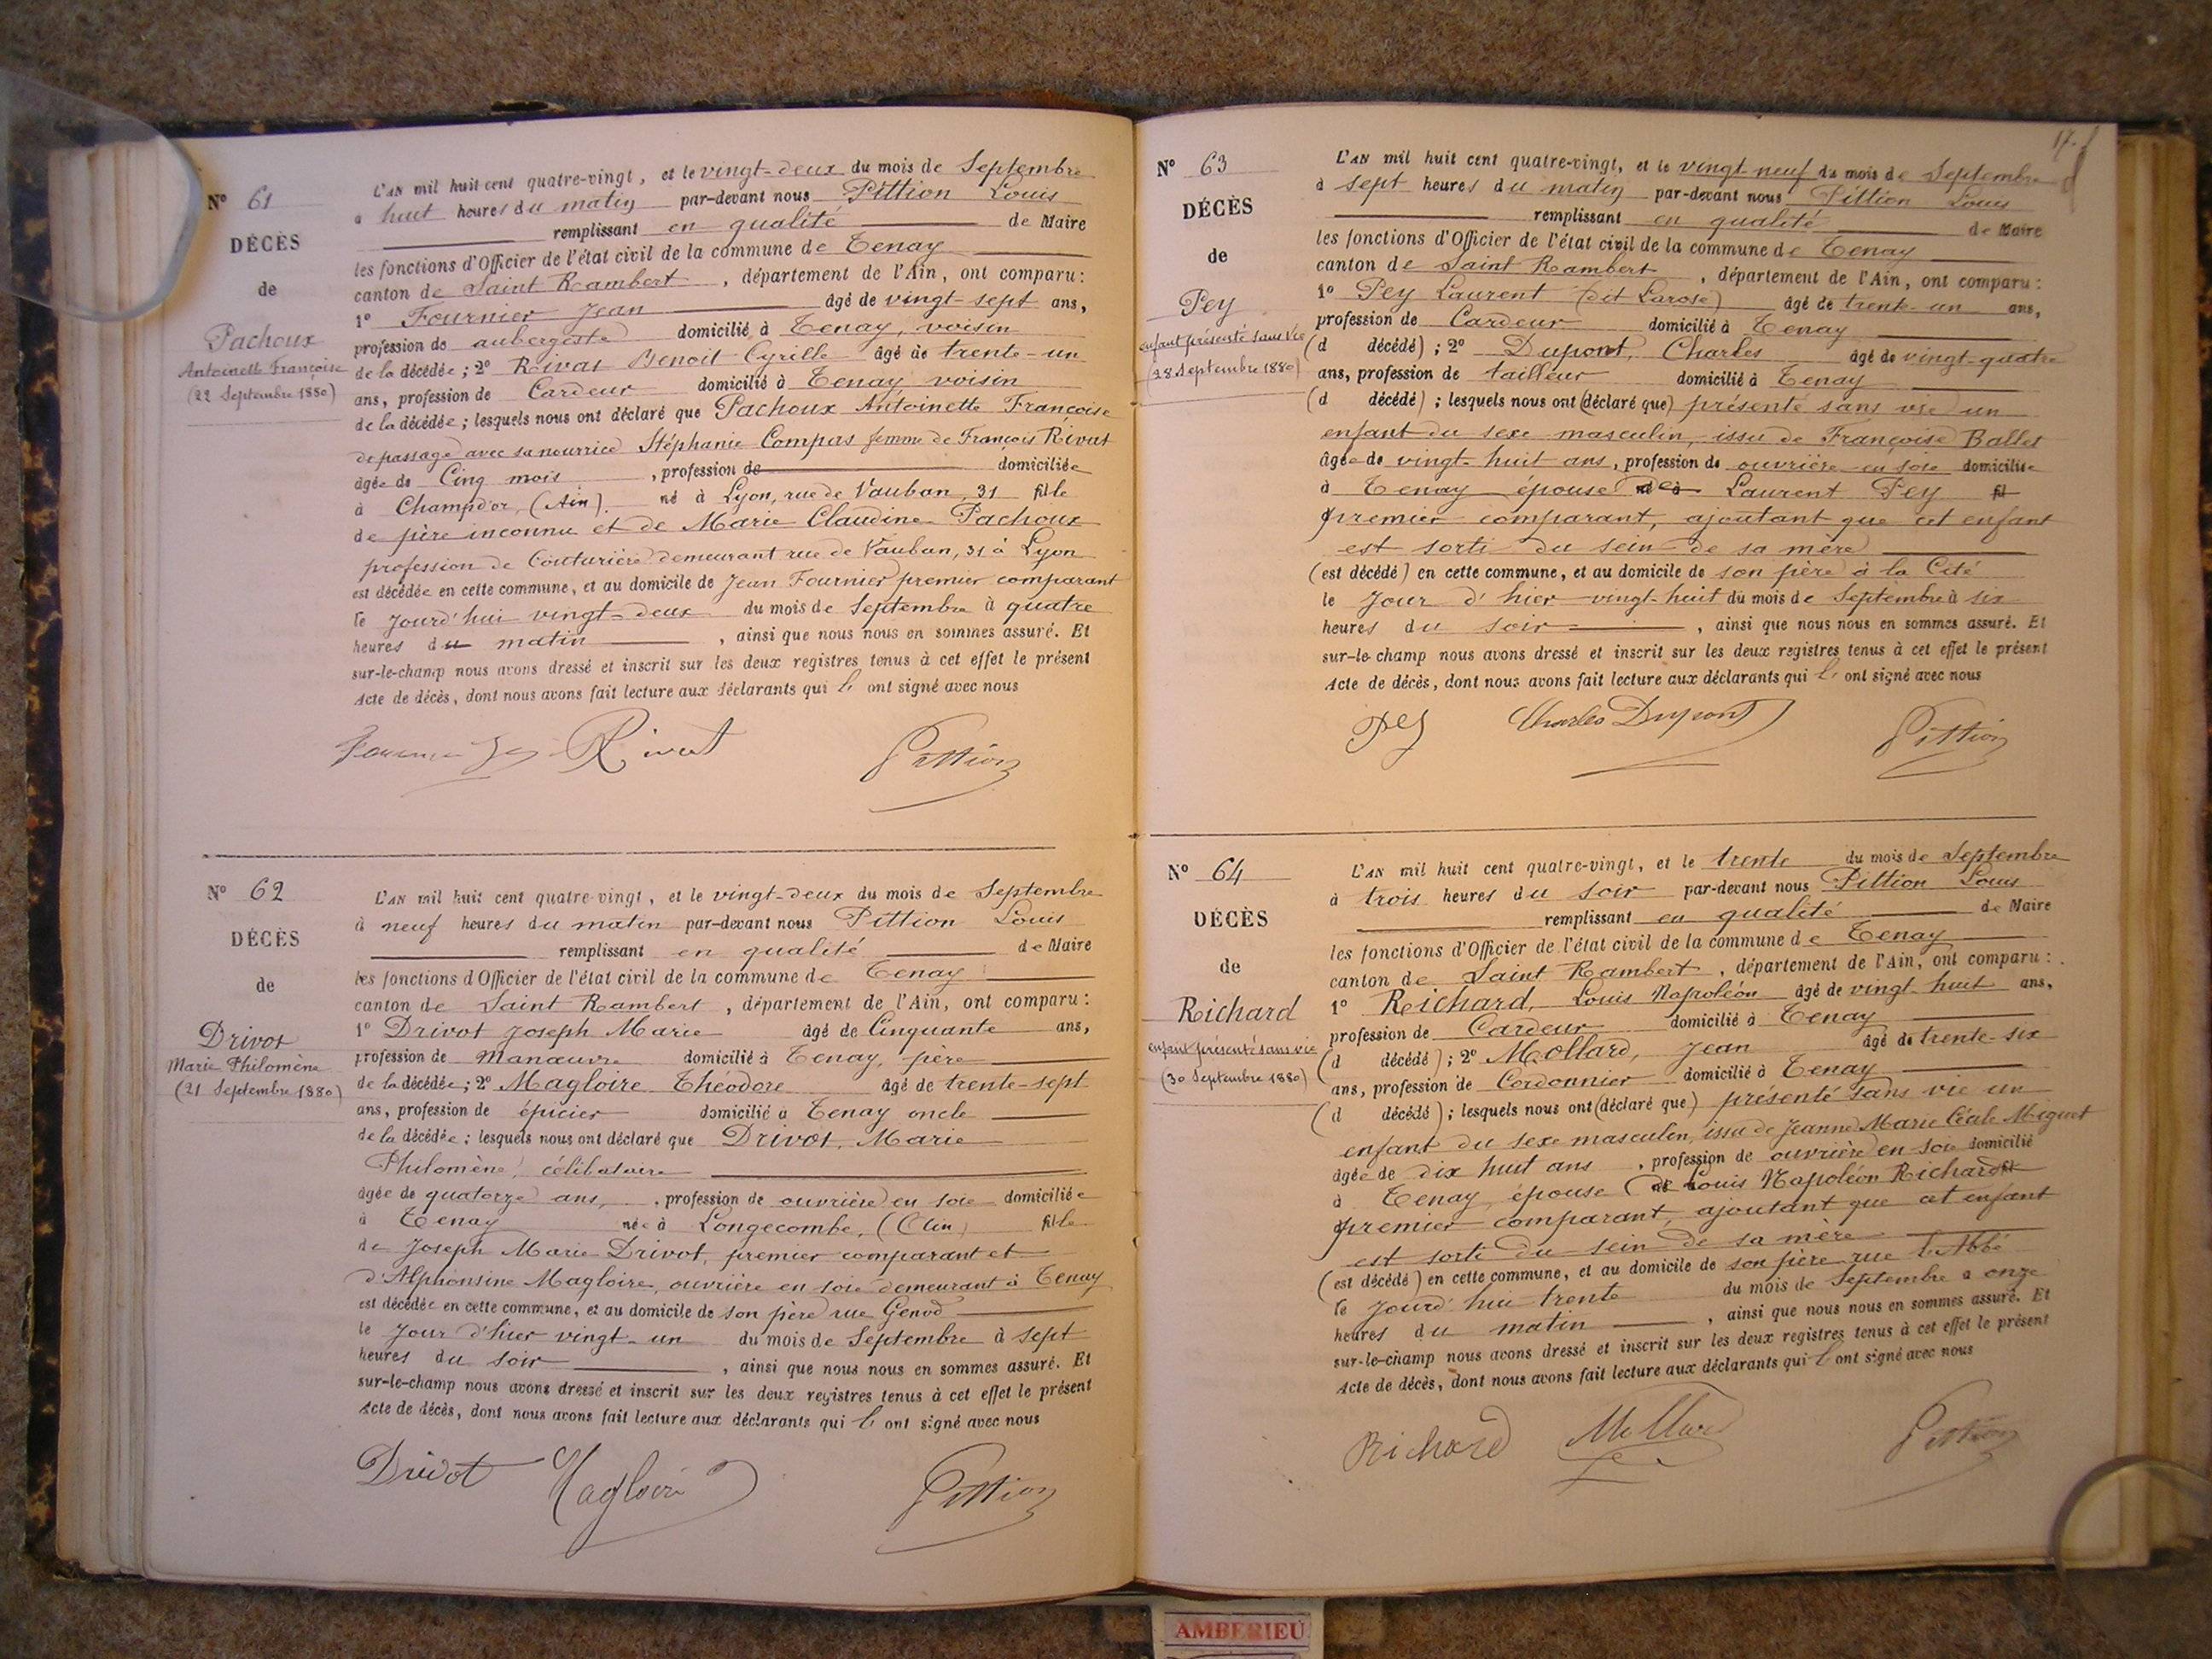 N° 61
DÉCÈS
de
Pachoux
Antoinette Françoise
(22 Septembre 1880)
L'AN mil huit cent quatre-vingt, et le vingt-deux du mois de Septembre
à huit heures du matin par-devant nous Pittion Louis
remplissant en qualité de Maire
les fonctions d'Officier de l'état civil de la commune de Tenay
canton de Saint Rambert, département de l'Ain, ont comparu:
1° Fournier Jean âgé de vingt-sept ans,
profession de aubergiste domicilié à Tenay, voisin
de la décédée; 2° Rivat Benoit Cyrille âgé de trente-un
ans, profession de Cardeur domicilié à Tenay voisin
de la décédée; lesquels nous ont déclaré que Pachoux Antoinette Françoise
de passage avec sa nourrice Stéphanie Compas femme de François Rivat
âgée de Cinq mois, profession de domiciliée
à Champdor, (Ain). né à Lyon, rue de Vauban, 31 fille
de père inconnu et de Marie Claudine Pachoux
profession de Couturière demeurant rue de Vauban, 31 à Lyon
est décédée en cette commune, et au domicile de Jean Fournier premier comparant
le jourd'hui vingt-deux du mois de Septembre à quatre
heures du matin, ainsi que nous nous en sommes assuré. Et
sur-le-champ nous avons dressé et inscrit sur les deux registres tenus à cet effet le présent
Acte de décès, dont nous avons fait lecture aux déclarants qui l' ont signé avec nous
Rivat Pittion
N° 62
DÉCÈS
de
Drivot
Marie Philomène
(21 Septembre 1880)
L'AN mil huit cent quatre-vingt, et le vingt-deux du mois de Septembre
à neuf heures du matin par-devant nous Pittion Louis
remplissant en qualité de Maire
les fonctions d'Officier de l'état civil de la commune de Tenay
canton de Saint Rambert, département de l'Ain, ont comparu:
1° Drivot Joseph Marie âgé de Cinquante ans,
profession de Manœuvre domicilié à Tenay, père
de la décédée; 2° Magloire Théodore âgé de trente-sept
ans, profession de épicier domicilié à Tenay oncle
de la décédée; lesquels nous ont déclaré que Drivot, Marie
Philomène, célibataire
âgée de quatorze ans, profession de ouvrière en soie domiciliée
à Tenay née à Longecombe, (Ain) fille
de Joseph Marie Drivot, premier comparant et
d'Alphonsine Magloire, ouvrière en soie demeurant à Tenay
est décédée en cette commune, et au domicile de son père rue Genod
le jour d'hier vingt-un du mois de Septembre à sept
heures du soir, ainsi que nous nous en sommes assuré. Et
sur-le-champ nous avons dressé et inscrit sur les deux registres tenus à cet effet le présent
Acte de décès, dont nous avons fait lecture aux déclarants qui l' ont signé avec nous
Drivot Magloire Pittion
17.
N° 63
DÉCÈS
de
Pey
enfant présenté sans vie
(28 Septembre 1880)
L'AN mil huit cent quatre-vingt, et le vingt-neuf du mois de Septembre
à sept heures du matin par-devant nous Pittion Louis
remplissant en qualité de Maire
les fonctions d'Officier de l'état civil de la commune de Tenay
canton de Saint Rambert, département de l'Ain, ont comparu:
1° Pey Laurent (dit Larose) âgé de trente-un ans,
profession de Cardeur domicilié à Tenay
(d décédé); 2° Dupont, Charles âgé de vingt-quatre
ans, profession de tailleur domicilié à Tenay
(d décédé); lesquels nous ont (déclaré que) présenté sans vie un
enfant du sexe masculin, issu de Françoise Ballet
âgée de vingt-huit ans, profession de ouvrière en soie domiciliée
à Tenay épouse de Laurent Pey fil
premier comparant, ajoutant que cet enfant
est sorti du sein de sa mère
(est décédé) en cette commune, et au domicile de son père à la Cité
le jour d'hier vingt-huit du mois de Septembre à six
heures du soir, ainsi que nous nous en sommes assuré. Et
sur-le-champ nous avons dressé et inscrit sur les deux registres tenus à cet effet le présent
Acte de décès, dont nous avons fait lecture aux déclarants qui l' ont signé avec nous
Pey Charles Dupont Pittion
N° 64
DÉCÈS
de
Richard
enfant présenté sans vie
(30 Septembre 1880)
L'AN mil huit cent quatre-vingt, et le trente du mois de Septembre
à trois heures du soir par-devant nous Pittion Louis
remplissant en qualité de Maire
les fonctions d'Officier de l'état civil de la commune de Tenay
canton de Saint Rambert, département de l'Ain, ont comparu:
1° Richard, Louis Napoléon âgé de vingt-huit ans,
profession de Cardeur domicilié à Tenay
(d décédé); 2° Mollard, Jean âgé de trente-six
ans, profession de Cordonnier domicilié à Tenay
(d décédé); lesquels nous ont (déclaré que) présenté sans vie un
enfant du sexe masculin, issu de Jeanne Marie Miguet
âgée de dix huit ans, profession de ouvrière en soie domicilié
à Tenay, épouse de Louis Napoléon Richard
premier comparant, ajoutant que cet enfant
est sorti du sein de sa mère
(est décédé) en cette commune, et au domicile de son père rue l'Abbé
le jourd'hui trente du mois de Septembre à onze
heures du matin, ainsi que nous nous en sommes assuré. Et
sur-le-champ nous avons dressé et inscrit sur les deux registres tenus à cet effet le présent
Acte de décès, dont nous avons fait lecture aux déclarants qui l' ont signé avec nous
Richard Mollard Pittion
AMBERIEU